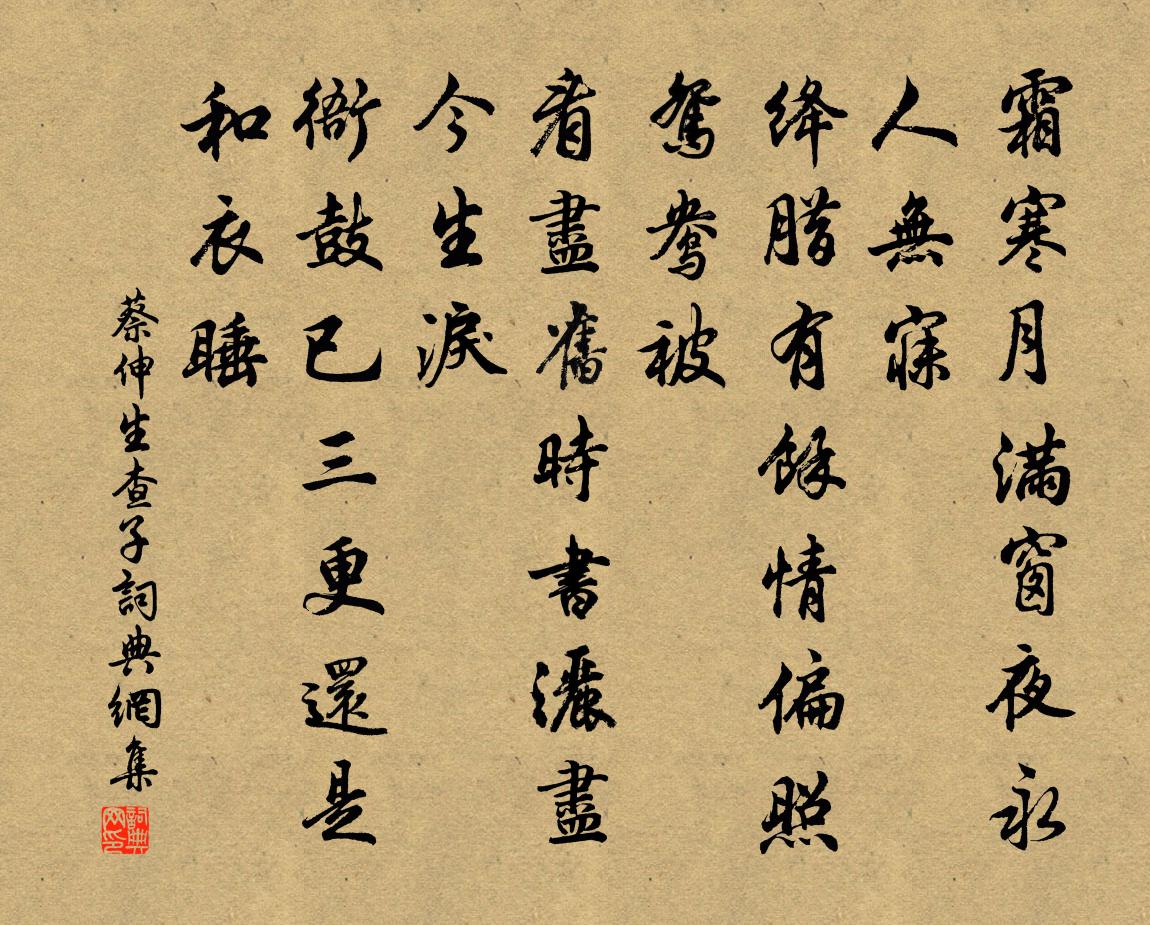 霜寒月满窗夜永
人無寐
绛腊有餘情偏照
鸳鸯被
看盡舊時書灑盡
今生淚
衙鼓已三更還是
和衣睡
蔡伸生查子詞典網集
詞典网印